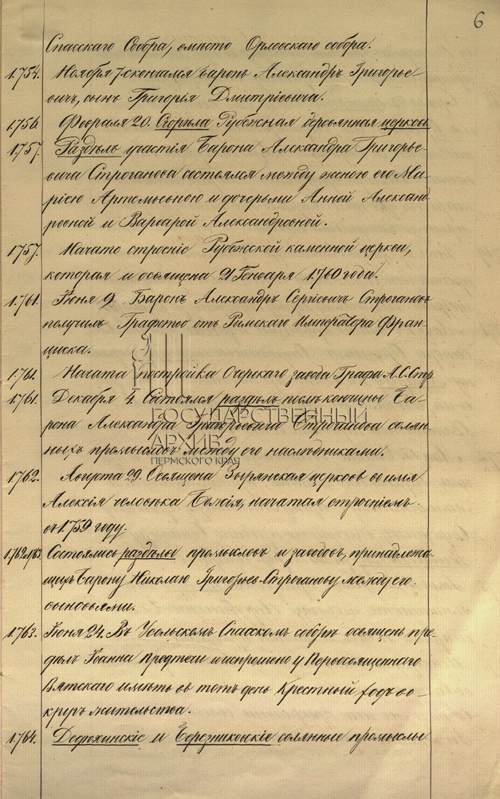 6
Спасскаго Собора, вместо Орловскаго собора.
1754. Ноября 7 скончался баронъ Александръ Григорье-
вичъ, сынъ Григорія Дмитріевича.
1756. Февраля 20. Сгорѣла Рубежская деревянная церковь
1757. Раздѣлъ участія Барона Александра Григорье-
вича Строганова состоялся между женою его Ма-
ріею Артемьевною и дочерьми Анной Александ-
ровной и Варварой Александровной.
1757. Начато строеніе Рубежской каменной церкви,
которая и освящена 21 Генваря 1760 года.
1761. Іюня 9. Баронъ Александръ Сергіевичъ Строгановъ
получилъ Графство отъ Римскаго Императора Фран-
циска.
1761. Начата постройка Очерскаго завода Графа А. С. Стр.
1761. Декабря 4. Состоялся раздѣлъ Ба-
рона Александра Григорьевича Строганова солян-
ныхъ промысловъ между его наслѣдниками.
ГОСУДАРСТВЕННЫЙ
АРХИВ
ПЕРМСКОГО КРАЯ
1762. Августа 29. Освящена Зырянская церковь во имя
Алексія человѣка Божія, начатая строеніемъ
въ 1759 году.
Состоялись раздѣлъ промысловъ и заводовъ, принадлежа-
щихъ Барону Николаю Григорьев. Строганову между его
сыновьями.
1763. Іюня 24. Въ Усольскомъ Спасскомъ соборѣ освященъ при-
дѣлъ Іоанна Предтечи и испрошено у Преосвященнаго
Вятскаго имѣть въ тотъ день Крестный ходъ во-
кругъ жительства.
1764. Дедюхинскіе и Березниковскіе соляные промыслы